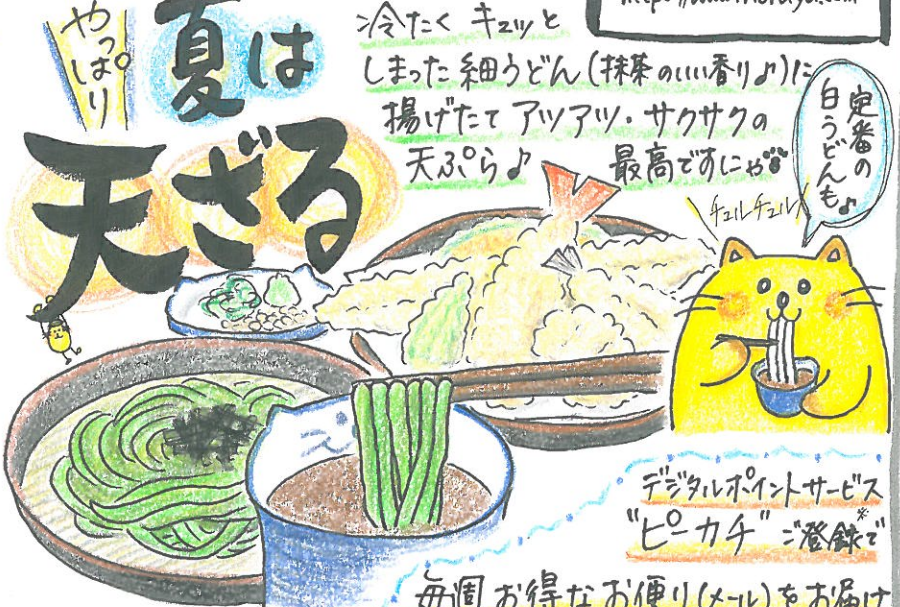 やっぱり
夏は
天ざる
冷たく キュッと
しまった 細うどん(抹茶のいい香り♪)に
揚げたて アツアツ・サクサクの
天ぷら♪ 最高ですにゃ
定番の
白うどんも♪
チュルチュル
デジタルポイントサービス
"ピーカチ" ご登録※で
毎週 お得な お便り(メール)を お届け